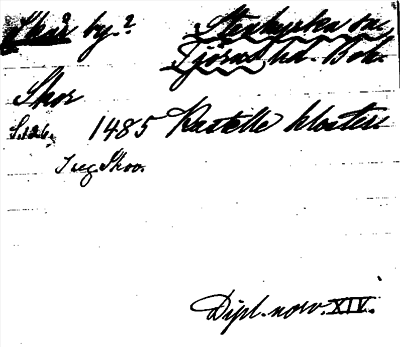 Skår by.? Stenkyrka sn,
Tjörns hd. Boh.
Skor
S.126. 1485 Kastelle klosters
I eg. Skoo.
Dipl. norv. XIV.